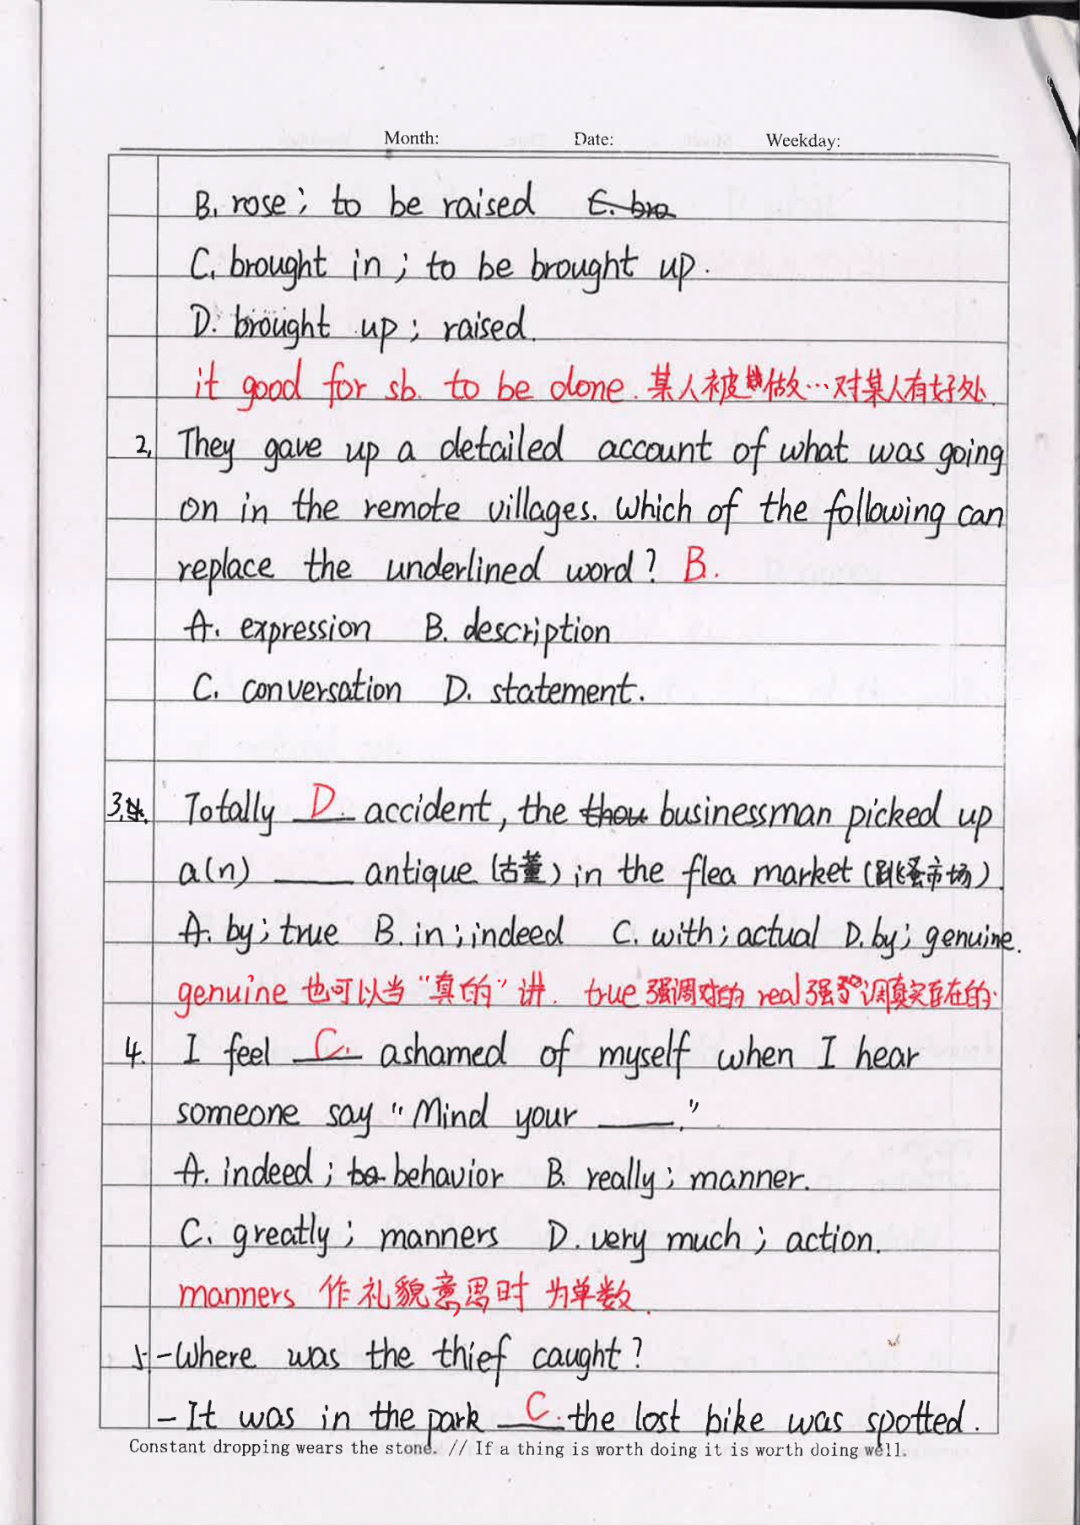 Month: Date: Weekday:
B. rose; to be raised C. bro
C. brought in; to be brought up.
D. brought up; raised.
it good for sb. to be done. 某人被做…对某人有好处
2. They gave up a detailed account of what was going
on in the remote villages. Which of the following can
replace the underlined word? B.
A. expression B. description
C. conversation D. statement.
3. Totally D. accident, the thou businessman picked up
a(n) ____ antique (古董) in the flea market (跳蚤市场)
A. by; true B. in; indeed C. with; actual D. by; genuine.
genuine 也可以当“真的”讲. true 强调对的 real强调真实存在的.
4. I feel C. ashamed of myself when I hear
someone say "Mind your ____."
A. indeed; be behavior B. really; manner.
C. greatly; manners D. very much; action.
manners 作礼貌意思时 为单数.
5. -Where was the thief caught?
- It was in the park C. the lost bike was spotted.
Constant dropping wears the stone. // If a thing is worth doing it is worth doing well.